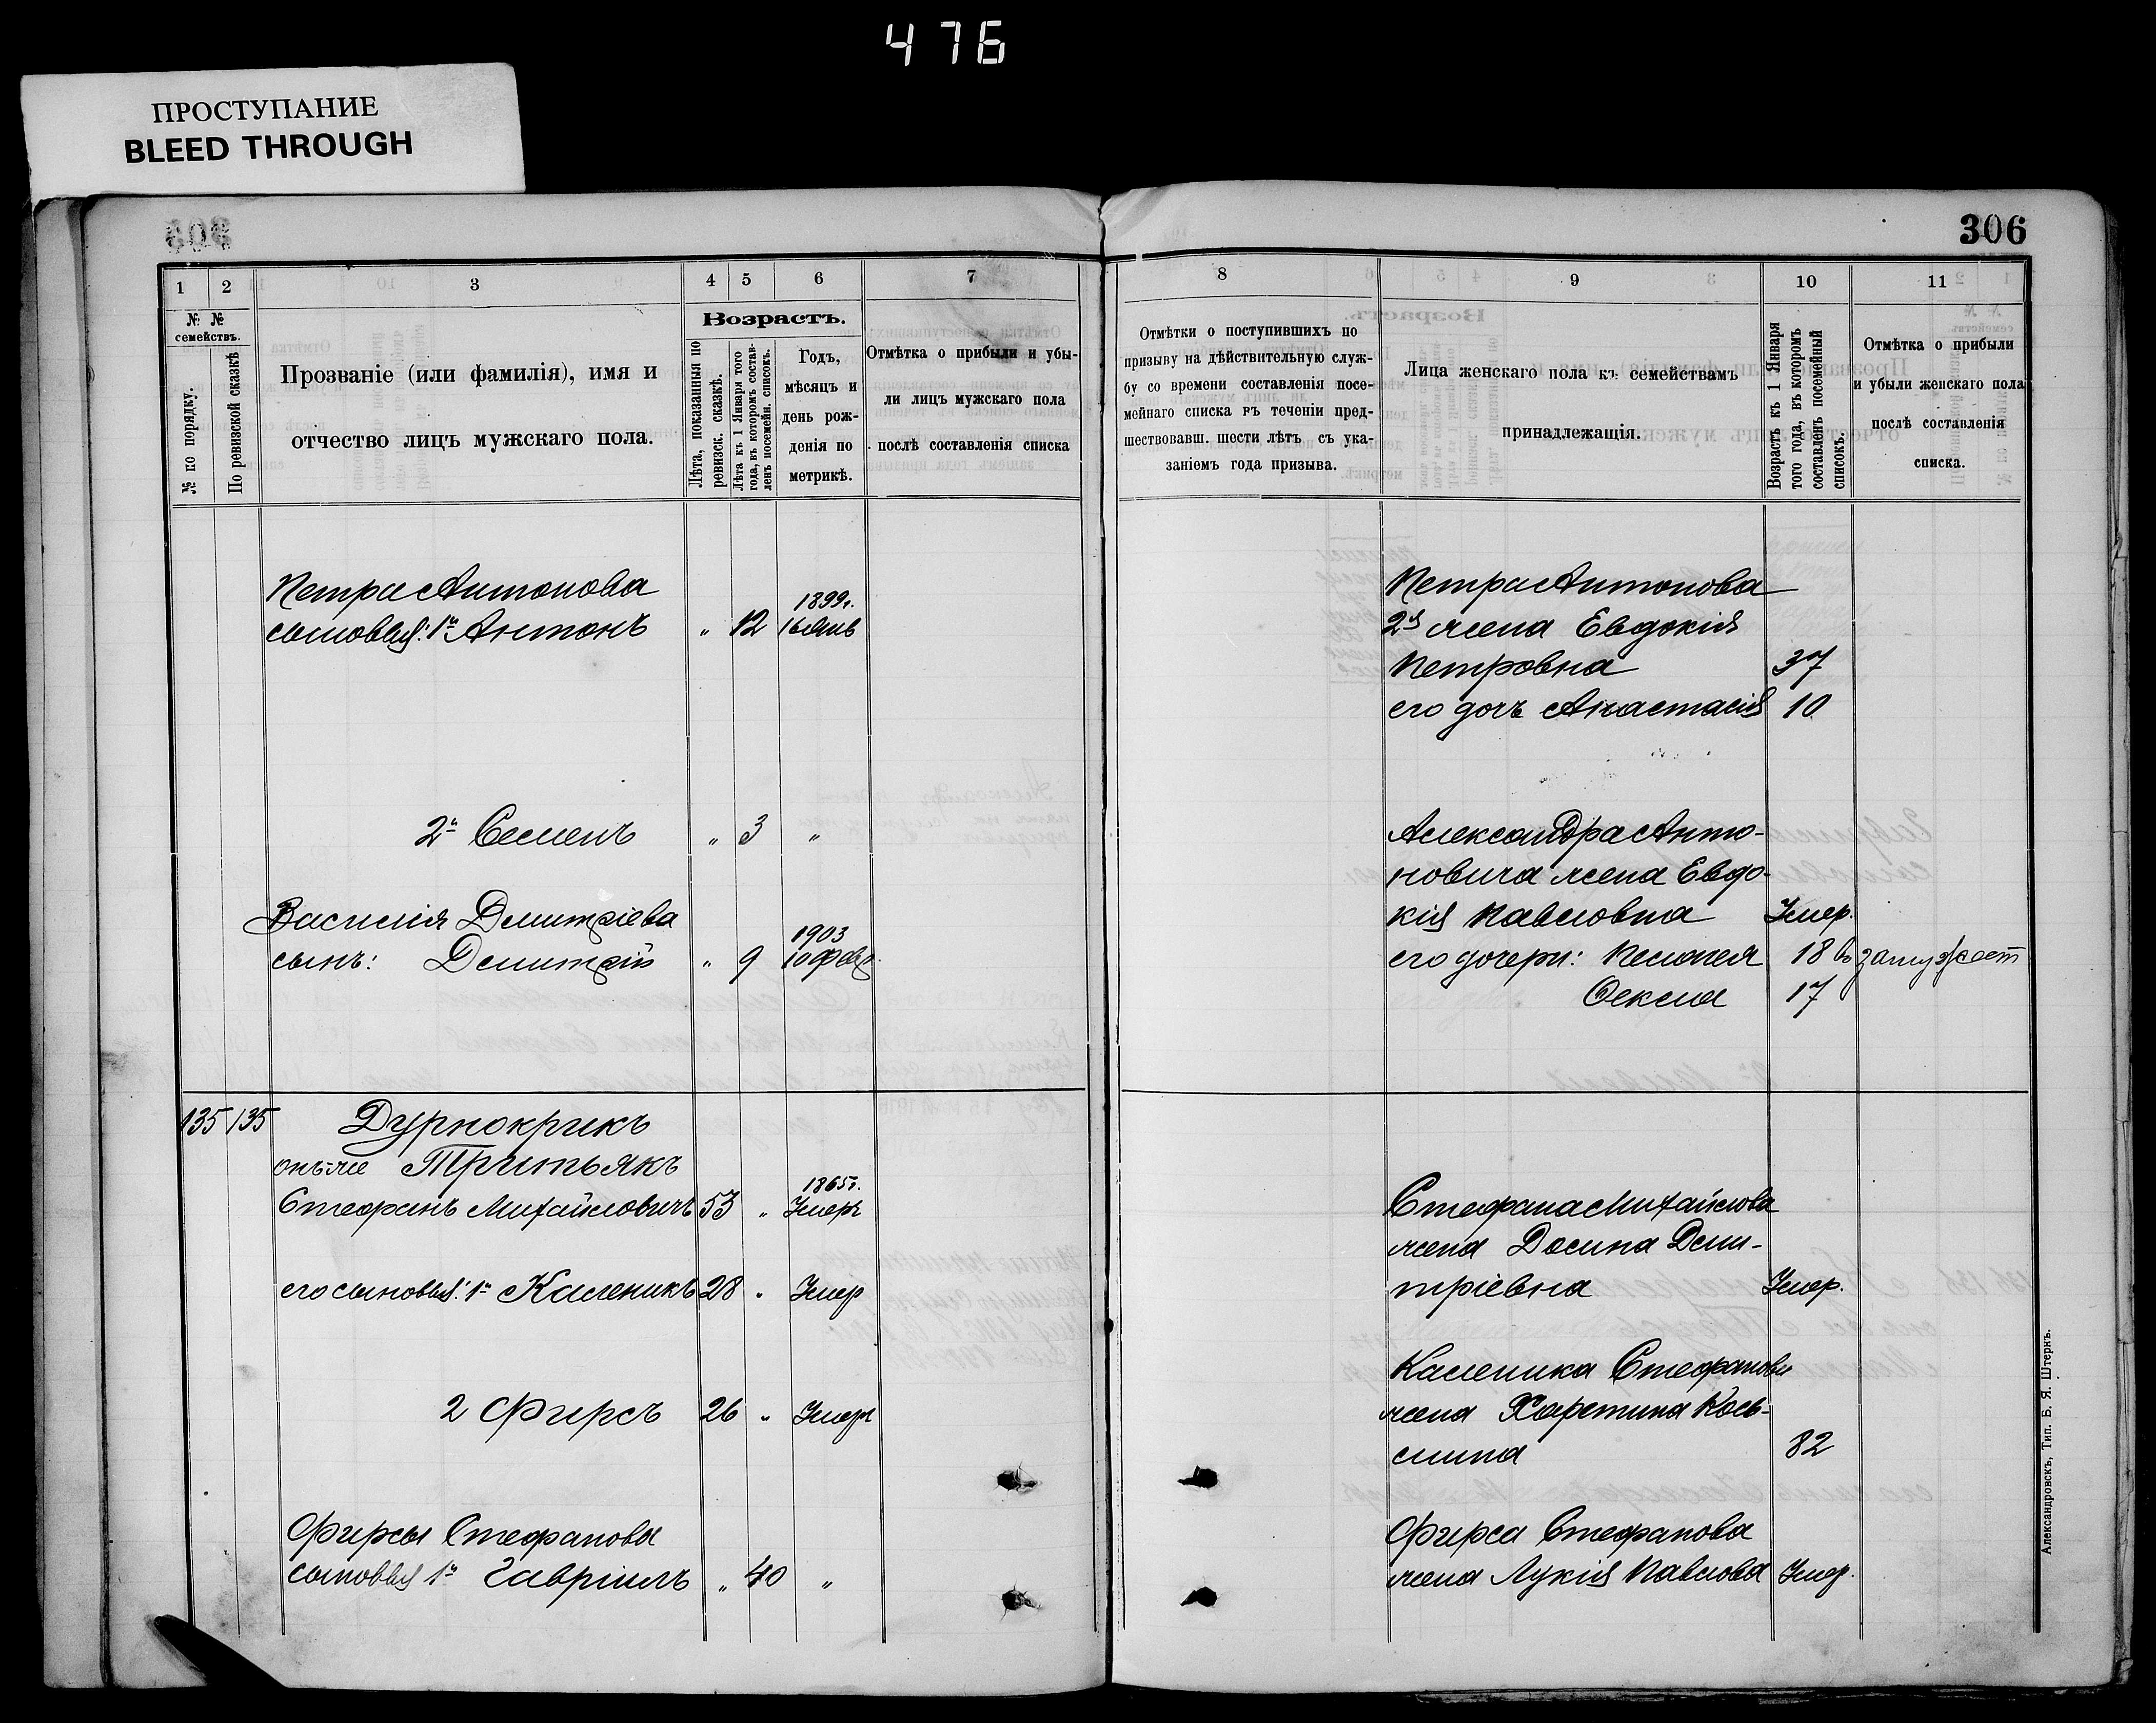 476
ПРОСТУПАНИЕ
BLEED THROUGH
306
1
2
3
4
5
6
7
№ №
семействъ.
№ по порядку.
По ревизской сказкѣ
Прозваніе (или фамилія), имя и
отчество лицъ мужскаго пола.
Возрастъ.
Лѣта, показанныя по
ревизск. сказкѣ.
Лѣта къ 1 Января того
года, въ которомъ состав-
ленъ посемейн. списокъ.
Годъ,
мѣсяцъ и
день рож-
денія по
метрикѣ.
Отмѣтка о прибыли и убы-
ли лицъ мужскаго пола
послѣ составленія списка
Петра Антонова
1899г.
сыновья: 1й Антонъ " 12 16 Янв
2й Семенъ " 3 "
Василія Дмитріева
1903
сынъ: Дмитрій " 9 10 Февр.
135 135 Дурнокрикъ
онъ-же Третьякъ
1865г.
Стефанъ Михайловичъ 53 " Умеръ
его сыновья: 1й Каленикъ 28 " Умер
2 Фирсъ 26 " Умеръ
Фирсы Стефанова
сыновья 1й Гавріилъ " 40 "
8
9
10
11
Отмѣтки о поступившихъ по
призыву на дѣйствительную служ-
бу со времени составленія посе-
мейнаго списка въ теченіи пред-
шествовавш. шести лѣтъ съ ука-
заніемъ года призыва.
Лица женскаго пола къ семействамъ
принадлежащія.
Возрастъ къ 1 Января
того года, въ которомъ
составленъ посемейный
списокъ.
Отмѣтка о прибыли
и убыли женскаго пола
послѣ составленія
списка.
Петра Антонова
2я жена Евдокія
Петровна 37
его дочь Анастасія 10
Александра Анто-
новича жена Евдо-
кія Павловна Умер.
его дочери: Пелагея 18 в замужест
Фекла 17
Стефана Михайлова
жена Домна Дми-
тріевна Умер.
Каленика Стефанова
жена Харетина Кось-
мина 82
Фирса Стефанова
жена Лукія Павлова Умер.
Александровскъ, Тип. Б. Я. Штернъ.